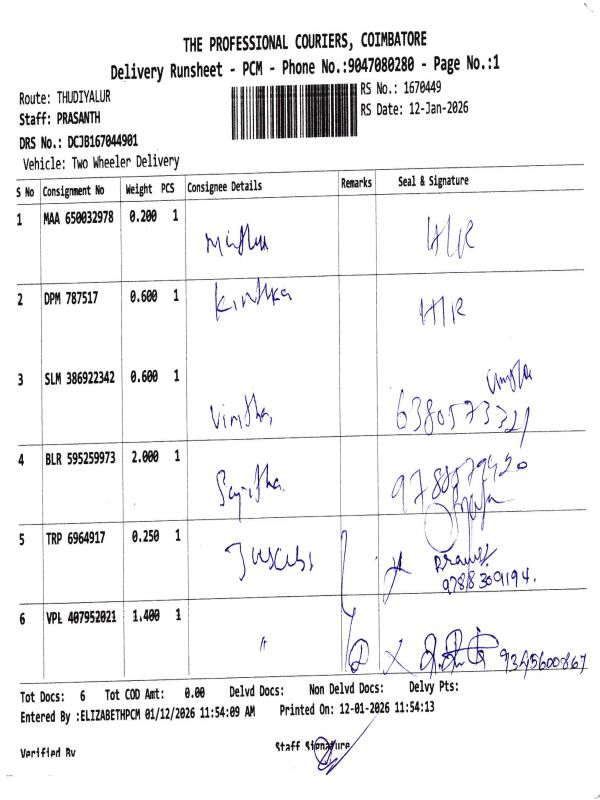 THE PROFESSIONAL COURIERS, COIMBATORE
Delivery Runsheet - PCM - Phone No.:9047080280 - Page No.:1
Route: THUDIYALUR
RS No.: 1670449
Staff: PRASANTH
RS Date: 12-Jan-2026
DRS No.: DCJB167044901
Vehicle: Two Wheeler Delivery
S No Consignment No Weight PCS Consignee Details Remarks Seal & Signature
1 MAA 650032978 0.200 1
H/R
2 DPM 787517 0.600 1 Kirthka
H/R
3 SLM 386922342 0.600 1
Vinitha,
6380573321
4 BLR 595259973 2.000 1
Sajitha
9788579420
5 TRP 6964917 0.250 1
9788309194.
6 VPL 407952021 1.400 1
"
9345600867
Tot Docs: 6 Tot COD Amt: 0.00 Delvd Docs: Non Delvd Docs: Delvy Pts:
Entered By :ELIZABETHPCM 01/12/2026 11:54:09 AM Printed On: 12-01-2026 11:54:13
Verified By Staff Signature